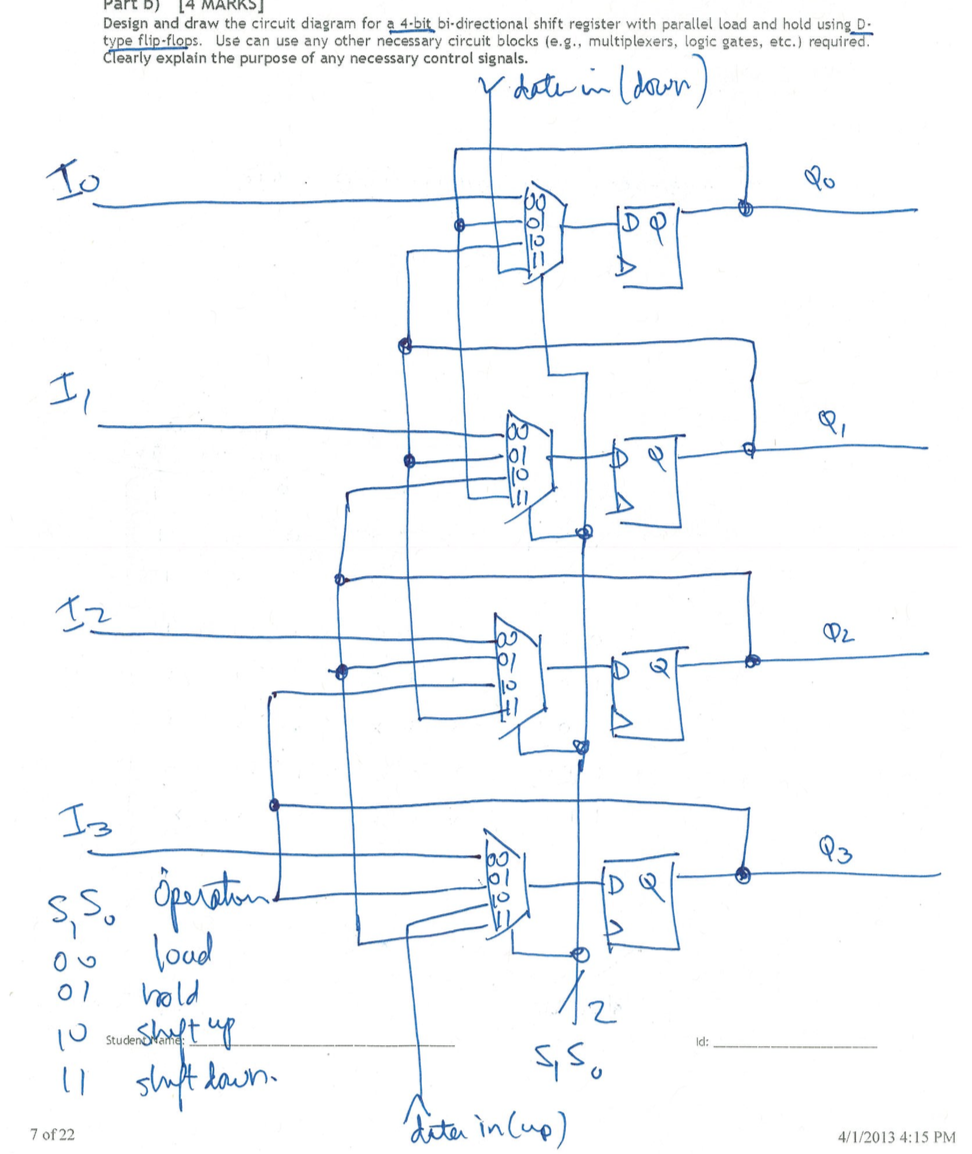 Part b) [4 MARKS]
Design and draw the circuit diagram for a 4-bit bi-directional shift register with parallel load and hold using D-
type flip-flops. Use can use any other necessary circuit blocks (e.g., multiplexers, logic gates, etc.) required.
Clearly explain the purpose of any necessary control signals.
data in (down)
I0
00
01
10
11
D Q
Q0
I1
00
01
10
11
D Q
Q1
I2
00
01
10
11
D Q
Q2
I3
00
01
10
11
D Q
Q3
S1 S0 Operation
00 load
01 hold
10 shift up
11 shift down.
2
S1 S0
Student Name:
Id:
data in (up)
7 of 22
4/1/2013 4:15 PM